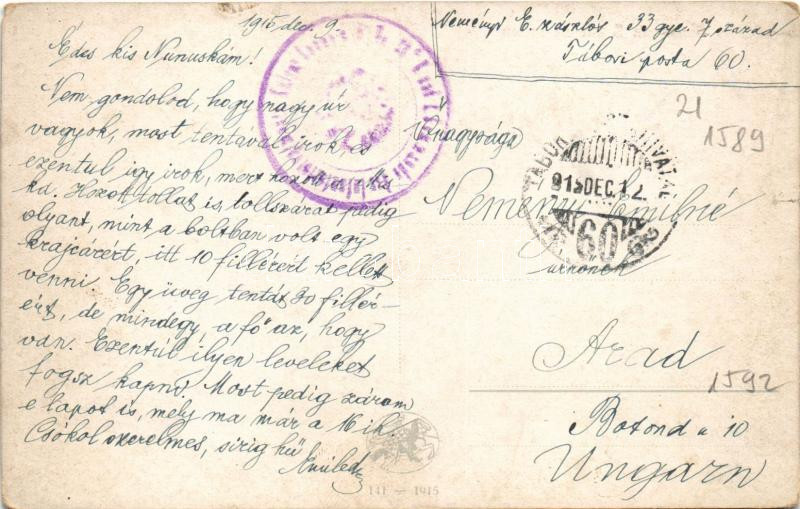 1915 dec. 9.
Édes kis Nunuskám!
Nem gondolod, hogy nagy úr
vagyok, most tentával irok, és
ezentul igy irok, mert hozott a
ka. Hozott tollat is, tollszárat pedig
olyant, mint a boltban volt egy
krajcárért, itt 10 fillérért kellett
venni. Egy üveg tentát 30 fillér-
ért, de mindegy, a fő az, hogy
van. Ezentúl ilyen leveleket
fogsz kapni. Most pedig zárom
e lapot is, mely ma már a 16 ik.
Csókol szerelmes, sirig hű
Emiled
Neményi E. zászlós 33 gye. 7 század
Tábori posta 60.
21
1589
Nagysága
TÁBORI POSTAHIVATAL
915 DEC. 12.
60
Neményi Emilné
úrhőnek
Arad
1592
Botond u 10
Ungarn
141 — 1915